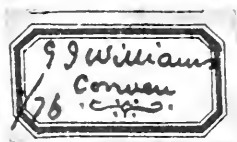 G J Williams
Corwen
/76